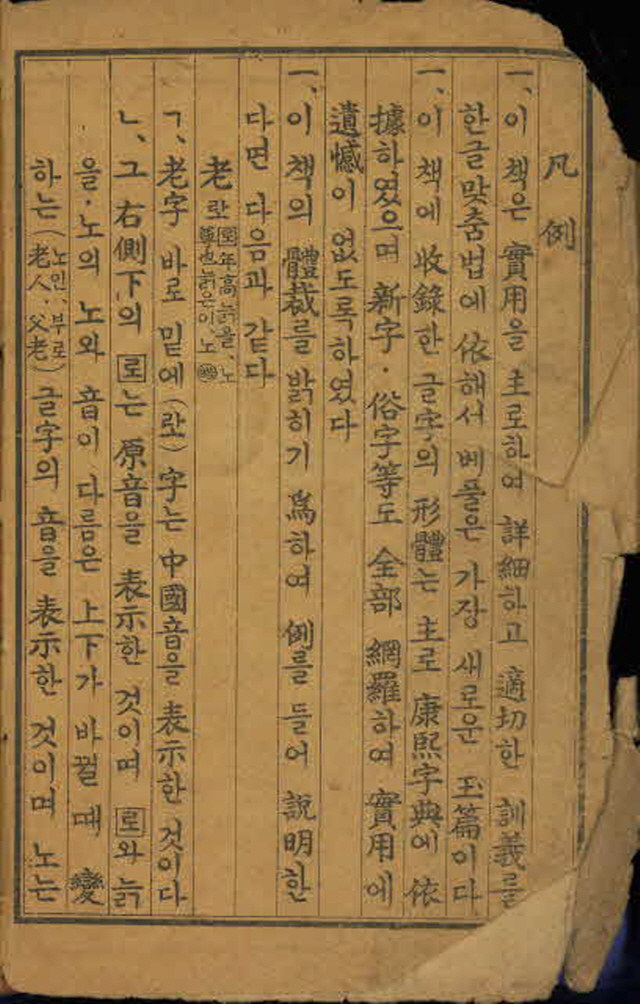 凡例
一、이 책은 實用을 主로하여 詳細하고 適切한 訓義를
한글맞춤법에 依해서 베풀은 가장 새로운 玉篇이다
一、이 책에 收錄한 글字의 形體는 主로 康熙字典에 依
據하였으며 新字·俗字等도 全部 網羅하여 實用에
遺憾이 없도록하였다
一、이 책의 體裁를 밝히기 爲하여 例를 들어 說明한
다면 다음과 같다
老 로 年高늙을、노
尊也늙은이、노
ㄱ、老字 바로 밑에 ( )字는 中國音을 表示한 것이다
ㄴ、그 右側下의 로는 原音을 表示한 것이며 로와 늙
을·노의 노와 音이 다름은 上下가 바뀔때 變
하는(노인、부로 老人·父老)글字의 音을 表示한 것이며 노는